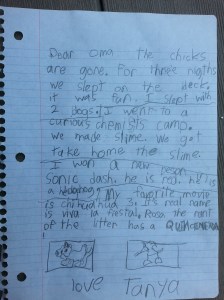 Dear oma the chicks
are gone. For three nigths
we slept on the deck.
it was fun. I slept with
2 dogs. I went to a
curious chemists camp.
we made slime. we got
take home the slime.
I won a new
Sonic dash. he is real.
a Hedgehog. My favorite movie
is chihuahua 3. it's real name
is viva la fiesta!. Rosa the runt
of the litter has a
love Tanya